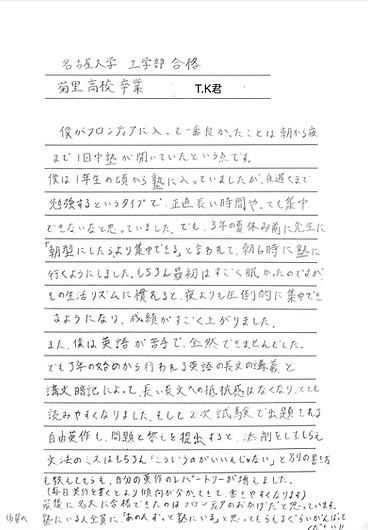 名古屋大学 工学部 合格
菊里高校卒業 T.K君
僕がフロンティアに入って一番良かったことは朝から夜
まで1日中塾が開いていたという点です。
僕は1年生の頃から塾に入っていましたが、夜遅くまで
勉強するというタイプで、正直長い時間やっても集中
できないなと思っていました。でも、3年の夏休み前に先生に
「朝型にしたらより集中できる」と言われて、朝6時に塾に
行くようにしました。もちろん最初はすごく眠かったのですが
その生活リズムに慣れると、夜よりも圧倒的に集中でき
るようになり、成績がすごく上がりました。
また、僕は英語が苦手で、全然できませんでした。
でも3年の始めから行われる英語の長文の講義と
講文暗記によって、長い長文への抵抗感はなくなり、とても
読みやすくなりました。そして2次試験で出題される
自由英作も、問題と答えを提出すると、添削をしてもらえ
文法のミスはもちろん「こういうのがいいんじゃない」と別の書き方
も教えてもらえ、自分の英作のレパートリーが増えました。
(毎日英作を書くとより傾向が分かってきて、書きやすくなります)
最後に名大に合格できたのはフロンティアのおかげだと思っています。
後輩へ 塾にいる人全員に、"あの人ずっと塾にいる"と思ってもらえるくらいがんばって
ください!!